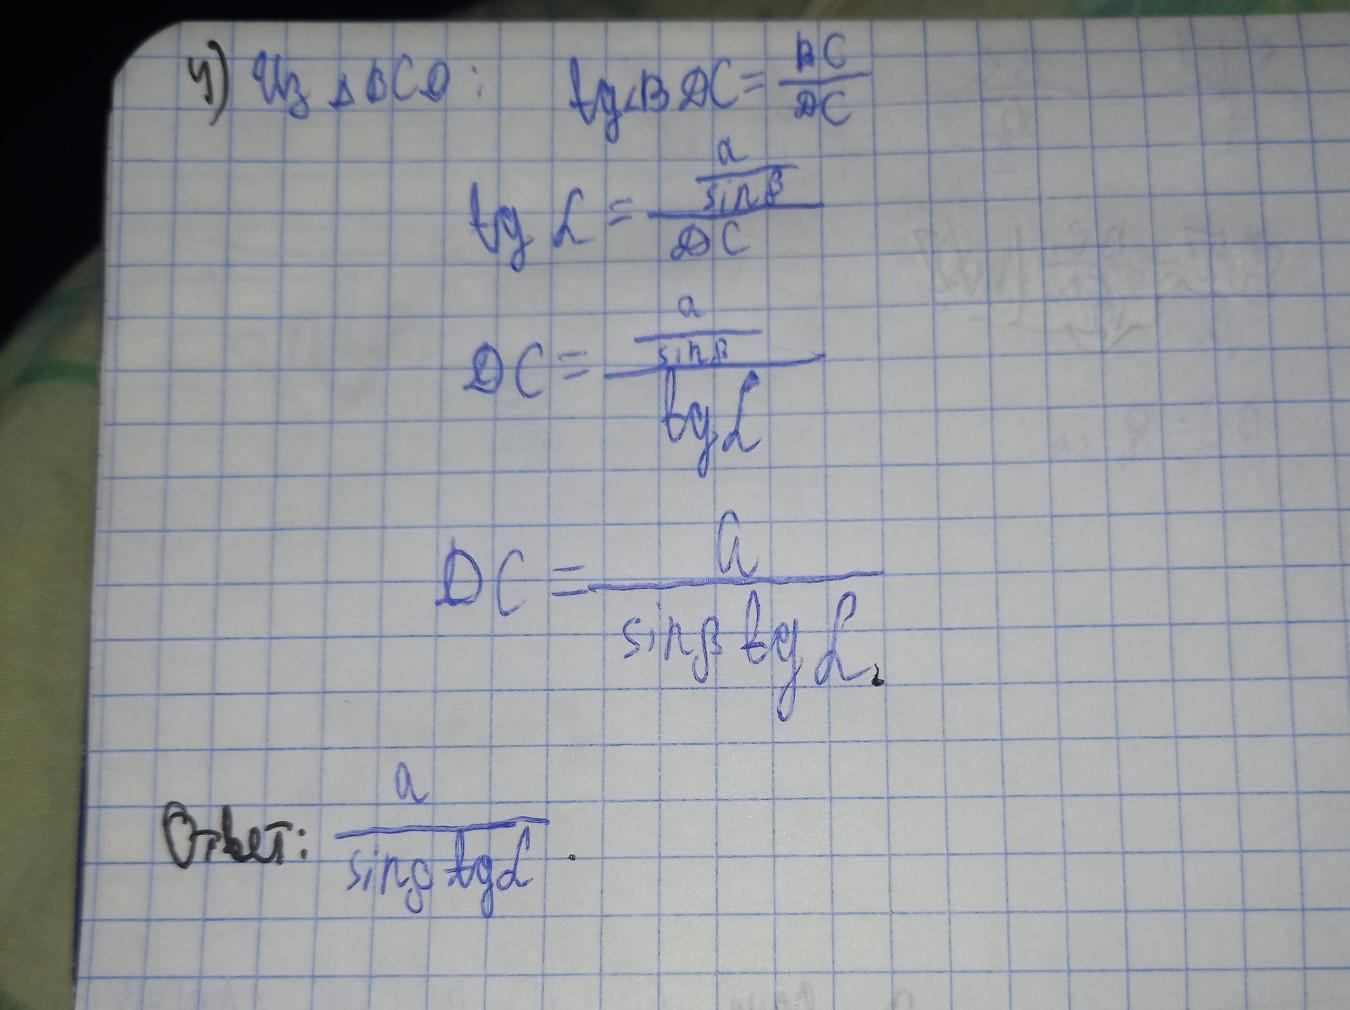 4) Из △BCD: tg∠BDC = BC/DC
tg α = (a/sinβ)/DC
DC = (a/sinβ)/tg α
DC = a/(sinβ tg α).
Ответ: a/(sinβ tg α).